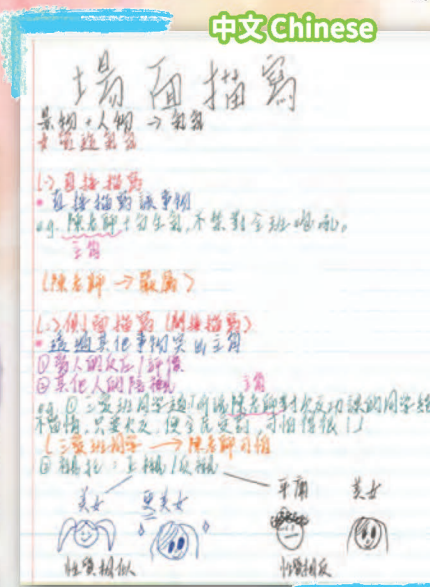 中文 Chinese
場面描寫
景物+人物 → 氣氛
*營造氣氛
(一)直接描寫
•直接描寫該事物
e.g. 陳老師十分生氣,不禁對全班咆哮。
主角
(陳老師 → 嚴厲)
(二)側面描寫(間接描寫)
•透過其他事物突出主角
①旁人的反應/評價
②其他人的陪襯
主角
e.g. ① 三愛班同學道「所謂陳老師對欠交功課的同學絕
不留情,只要欠交,便會受罰,可怕得很!」
(三愛班同學 → 陳老師可怕
②襯托:正襯/反襯
美女 更美女 平庸 美女
性質相似 性質相反